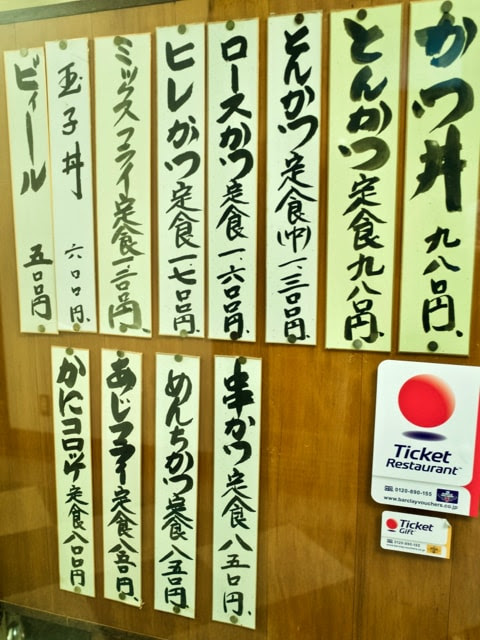 かつ丼 九八〇円.
とんかつ定食 九八〇円.
とんかつ定食(中) 一、三〇〇円.
ロースかつ定食 一、六〇〇円.
ヒレかつ定食 一、七〇〇円.
ミックスフライ定食
玉子丼 六〇〇円.
ビィール 五〇〇円
串かつ定食 八五〇円.
めんちかつ定食 八五〇円
あじフライ定食 八五〇円.
かにコロッケ定食 八〇〇円
Ticket
Restaurant
0120-890-155
www.barclayvouchers.co.jp
Ticket
Gift